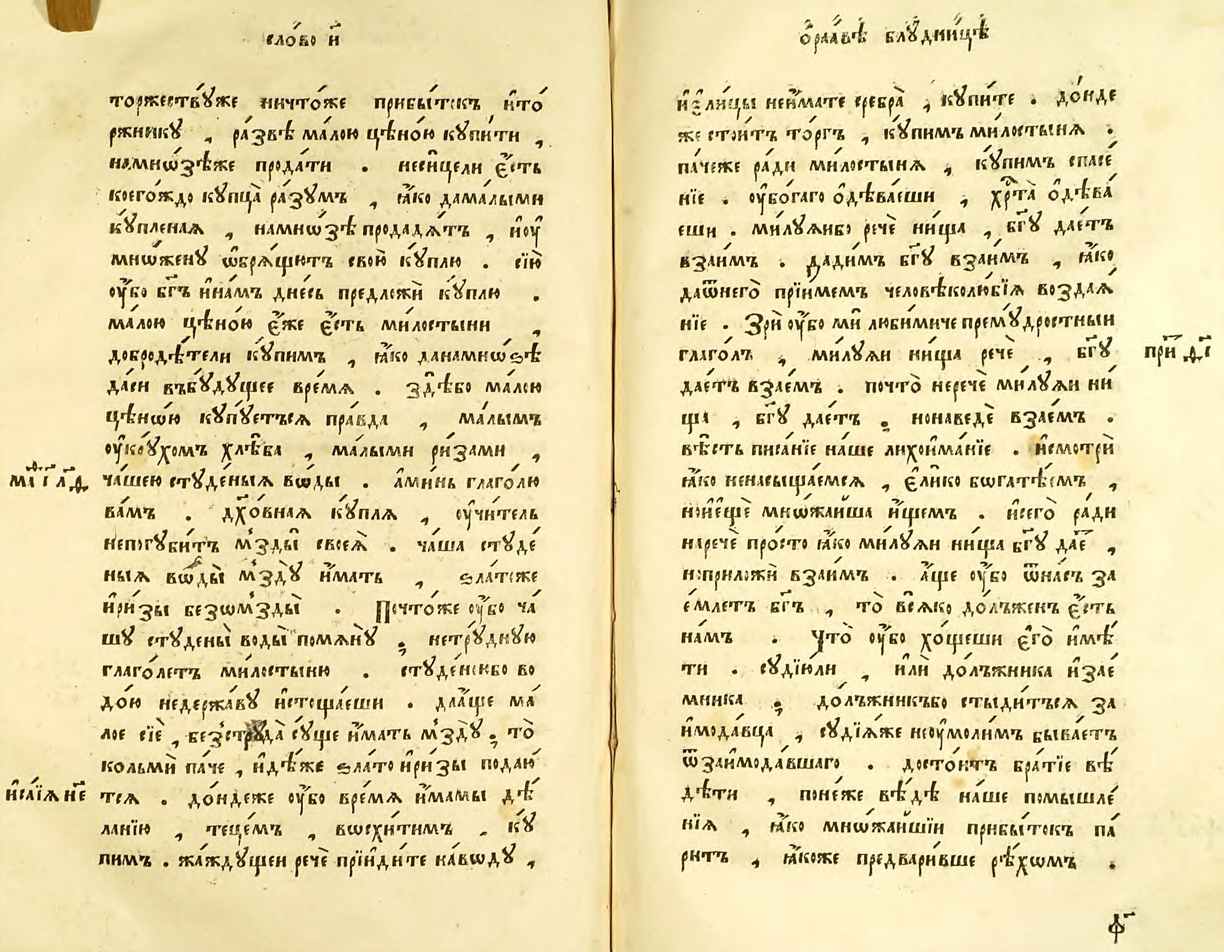 сло́во и҃
торжествꙋ́же ничто́же прибы́токъ и҆то
ржникꙋ̀ , ра́звѣ ма́лою цѣно́ю кꙋпи́ти ,
намно́ѕѣже прода́ти . неси́цели є҆́сть
коего́ждо кꙋпца̀ ра́зꙋмъ , ꙗ҆́ко дама́лыми
кꙋ́пленаѧ , намно́зѣ продадѧ́тъ , и҆оу҆
мнѡ́женꙋ ѡ҆брѧ́щꙋтъ свою̀ кꙋ́плю . сїю̀
оу҆́бо бг҃ъ и҆на́мъ дне́сь предложѝ кꙋ́плю .
ма́лою цѣно́ю є҆́же є҆́сть ми́лостыни ,
добродѣ́тели кꙋ́пимъ , ꙗ҆́ко данамнѡ́ѕѣ
да́си въбꙋ́дꙋщее вре́мѧ . здѣ́бо ма́лою
цѣнѡ́ю кꙋпꙋ́етъсѧ пра́вда , ма́лымъ
оу҆крꙋ́хомъ хлѣ́ба , ма́лыми ри́зами ,
ча́шею стꙋде́ныѧ вѡды̀ . а҆ми́нь глаго́лю
ва́мъ . дꙋ҃хо́внаѧ кꙋ́плѧ , оу҆чи́тель
непогꙋби́тъ мъзды̀ своеѧ̀ . ча́ша стꙋде
ныѧ вѡды̀ мъздꙋ̀ и҆́мать , ѕла́тоже
и҆ри́зы безѡмъзды̀ . Почто́же оу҆́бо ча́
шꙋ стꙋдены̀ воды̀ помѧнꙋ̀ ; нетрꙋ́днꙋю
глаго́летъ ми́лостыню . стꙋде́ноюбо во
до́ю недержа́вꙋ и҆стоща́еши . да́а҆ще ма́
лое сїѐ , безтрꙋда̀ сꙋ́ще и҆́мать мъздꙋ̀ , то̀
кольмѝ па́че , и҆дѣ́же ѕла́то и҆ри́зы подаю́
тсѧ . до́ндеже оу҆́бо вре́мѧ и҆́мамы дѣ́
ланїю , тецѐмъ , восхи́тимъ , кꙋ́
пимъ . жа́ждꙋщеи речѐ прїиди́те на́водꙋ ,
мѳ҃ і҃ л҃д
и҆са́їѧ н҃е
ѡ҆раа́вѣ блꙋдни́цѣ
и҆е҆ли́цы неи҆́мате сребра̀ , кꙋпи́те . до́нде
же стои́тъ то́ргъ , кꙋ́пимъ ми́лостынѧ .
па́чеже ра́ди ми́лостынѧ , кꙋ́пимъ спасе́
нїе . оу҆бо́гаго ѻ҆дѣва́еши , хр҃та̀ ѻ҆дѣва́
еши . ми́лꙋѧибо речѐ ни́ща , бг҃ꙋ дае́тъ
взаи́мъ . дади́мъ бг҃ꙋ взаи́мъ , ꙗ҆́ко
даѿнего̀ прїи́мемъ человѣколю́бїѧ воздаѧ́
нїе . Зрѝ оу҆́бо мѝ люби́миче премꙋ́дростныи
глаго́лъ , ми́лꙋѧи ни́ща речѐ , бг҃ꙋ
дае́тъ взае́мъ . почто̀ неречѐ ми́лꙋѧи ни́
ща , бг҃ꙋ дае́тъ , нонаведѐ взае́мъ .
вѣ́сть писа́нїе на́ше лихои́манїе . и҆смотрѝ
ꙗ҆́ко ненасыща́емсѧ , є҆ли́ко бѡгатѣ́емъ ,
и҆о҆и҆е҆щѐ мнѡжа́йша и҆́щемъ . и҆сего̀ ра́ди
наречѐ про́сто ꙗ҆́ко ми́лꙋѧи ни́ща бг҃ꙋ дае́ ,
ноприложѝ взаи́мъ . а҆́ще оу҆́бо ѿна́съ за
е́млетъ бг҃ъ , то̀ всѧ́ко до́лъженъ є҆́сть
на́мъ . Что̀ оу҆́бо хо́щеши є҆го̀ и҆мѣ́
ти . сꙋдїю́ли , и҆лѝ до́лъжника и҆зае
мника ; до́лъжникъбо стыди́тъсѧ за
и҆мода́вца , сꙋдїѧ́же неоу҆моли́мъ быва́етъ
ѿзаи́мода́вшаго . досто́итъ бра́тїе вѣ́
дѣти , поне́же вѣ́дѣ на́ше помышле́
нїѧ , ꙗ҆́ко мнѡжа́йшїи прибы́токъ па́
ритъ , ꙗ҆́коже предвари́вше рѣ́хѡмъ .
при́ д҃і
ф҃